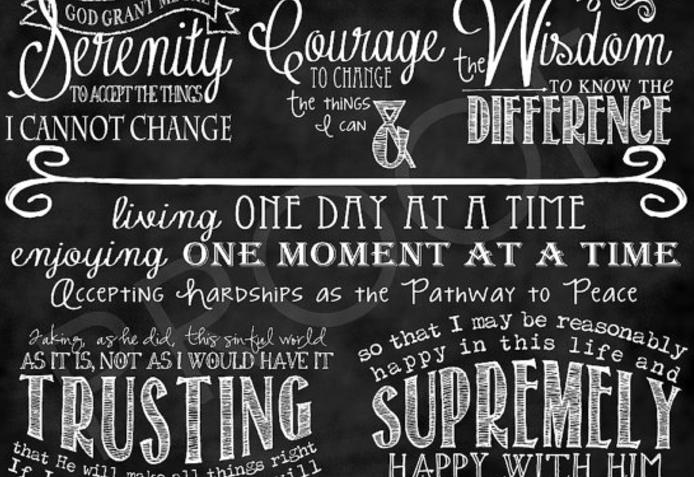 GOD GRANT ME THE
Serenity
TO ACCEPT THE THINGS
I CANNOT CHANGE
Courage
TO CHANGE
the things
I can
&
the Wisdom
TO KNOW THE
DIFFERENCE
living ONE DAY AT A TIME
enjoying ONE MOMENT AT A TIME
Accepting hardships as the Pathway to Peace
Taking, as he did, this sinful world
AS IT IS, NOT AS I WOULD HAVE IT
TRUSTING
that He will make all things right
If I
will
so that I may be reasonably
happy in this life and
SUPREMELY
HAPPY WITH HIM
PROOF